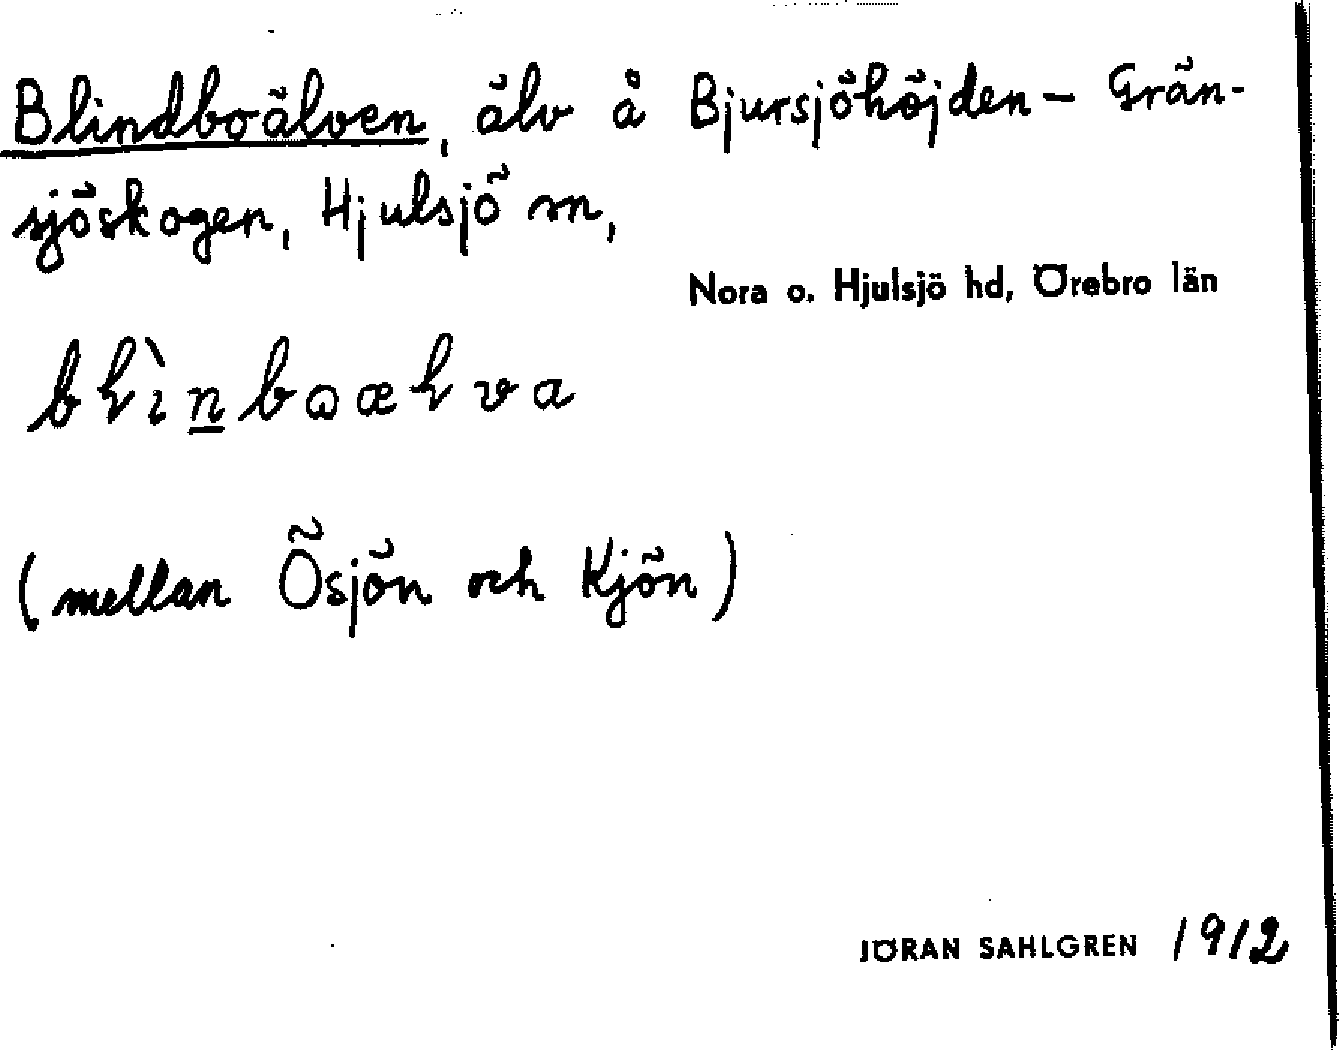 Blindboälven, älv å Bjursjöhöjden – Grän-
sjöskogen, Hjulsjö sn,
Nora o. Hjulsjö hd, Örebro län
(mellan Ösjön och Kjön)
JÖRAN SAHLGREN 1912